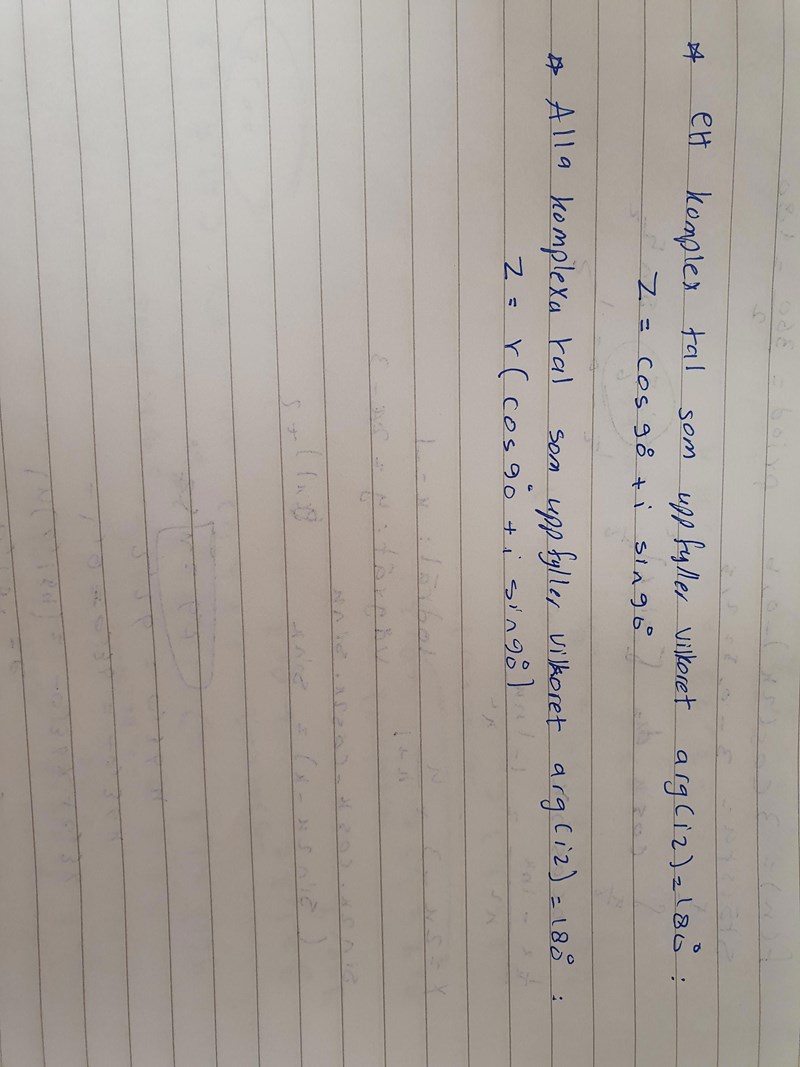 * ett komplex tal som uppfyller vilkoret arg(iz)=180° :
z = cos 90° + i sin 90°
* Alla komplexa tal som uppfyller vilkoret arg(iz) = 180° :
z = r ( cos 90° + i sin 90° )